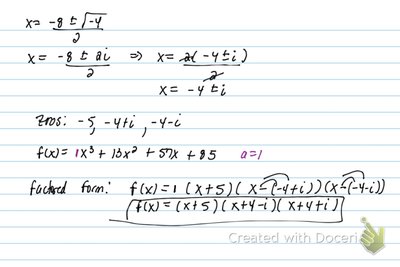 x = (-8 ± √-4)/2
x = (-8 ± 2i)/2 ⇒ x = 2(-4 ± i)/2
x = -4 ± i
Zeros: -5, -4+i, -4-i
f(x) = 1x³ + 13x² + 57x + 85 a=1
Factored form: f(x) = 1 (x+5)(x-(-4+i))(x-(-4-i))
f(x) = (x+5)(x+4-i)(x+4+i)
Created with Doceri